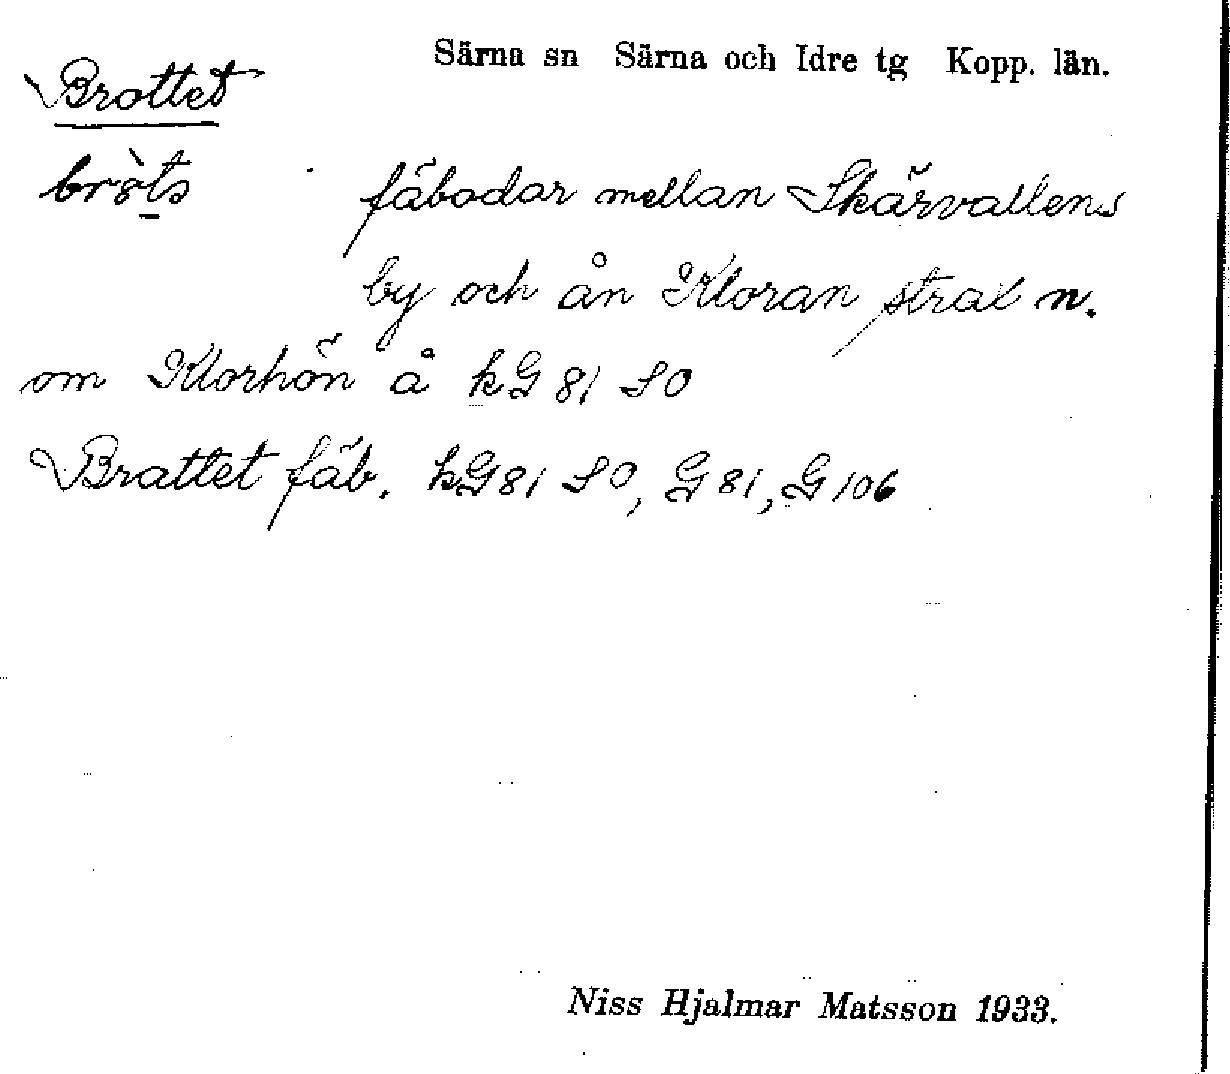 Särna sn Särna och Idre tg Kopp. län.
Brottet
fäbodar mellan Skärvallens
by och ån Kloran strax n.
om Klorhön å kG 81 SO
Brattet fäb. kG 81 SO, G 81, G 106
Niss Hjalmar Matsson 1933.